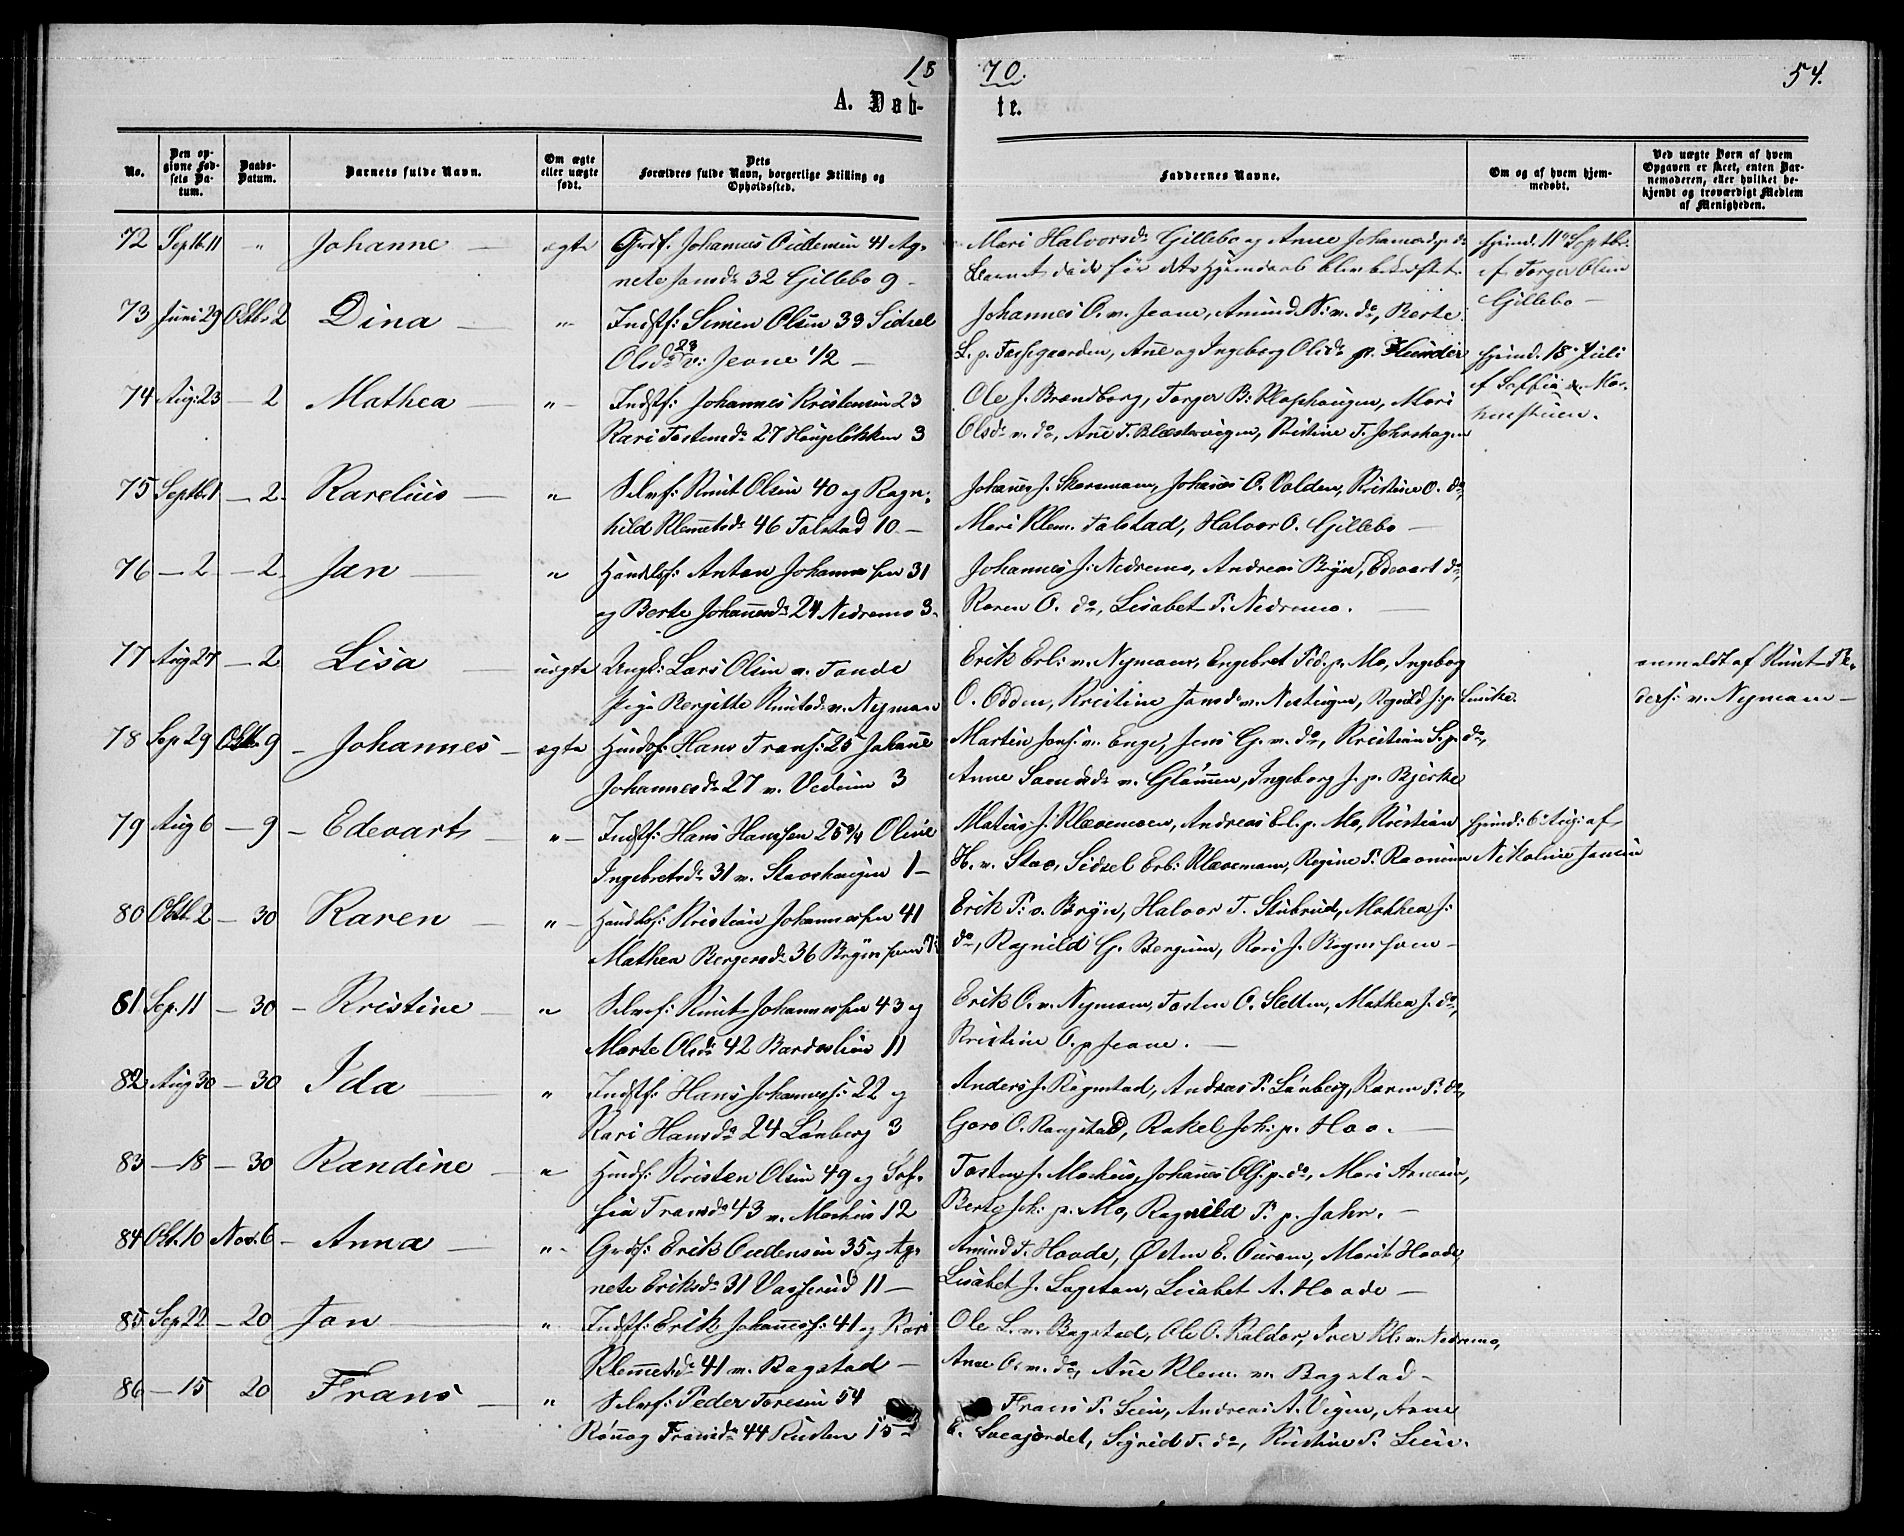 1870.
54.
A. Døbte.
No.
Den opgivne Fødsels Datum.
Daabs-Datum.
Barnets fulde Navn.
Om ægte eller uægte født.
Dets Forældres fulde Navn, borgerlige Stilling og Opholdssted.
Faddernes Navne.
Om og af hvem hjemmedøbt.
Ved uægte Børn af hvem Opgaven er skeet, enten Barnemoderen, eller hvilket bekjendt og troværdigt Medlem af Menigheden.
72 Septb. 11 " Johanne — ægte Grdf. Johannes Oudensen 41 Ag-
nete Jansdr 32 Gillebo 9 —
Mari Halvorsdr Gillebo og Anne Johannesd. p. do
Barnet døde før dets Hjemdaab blev bekræftet.
Hjemd. 11 Septbr.
af Torger Olsen
Gillebo —
73 Juni 29 Oktb. 2 Dina — " Indstf: Simen Olsen 33 Sidsel
Olsdr 28 v: Jevne 1/2 —
Johannes O. v. Jevne, Amund N. v. do, Berte
L. p. Fossegaarden, Ane og Ingeborg Olsdr p. Hunder
Hjemd. 18 Juli
af Soffia
74 Aug: 23 — 2 Mathea — " — Indstf: Johannes Kristensen 23
Kari Tostensdr 27 Haugeløkken 3
Ole J. Brændborg, Torger B. Klophaugen, Mari
Olsdr v. do, Ane T. Kristine T. Johrshagen
75 Septb. 1 — 2 Karelius — " Selvef: Knut Olsen 40 og Ragn-
hild Klemetsdr 46 Talstad 10 —
Johanes J. Johanes O. Volden, Kristine O. do,
Mari Klem. Talstad, Halvor O. Gillebo —
76 — 2 — 2 Jan — " Husmf: Anton Johannessen 31
og Berte Johannesdr 24 Nedremo 3.
Johannes J. Nedremo, Andreas Bryn, Edevart do,
Karen O. do, Lisabet P. Nedremo. —
77 Aug 27 — 2 Lisa — uægte Ungk: Lars Olsen v. Tande
Pige Bergitte Knutsd. v. Nyman
Erik Erl: v. Nymoen, Engebret Ped. p. Mo, Ingeborg
O. Odden, Kristine Jansd. v.
anmeldt af Knut Pe-
ders: v. Nymoen —
78 Sep 29 Oktb. 9 — Johannes — ægte Husmf: Hans Frans: 25 Johane
Johannesdr 27 v. Vedum 3
Martin Jons: v. Enge, Jens G. v. do, Kristian S. p. do,
Anne v. Glømmen, Ingeborg J. p. Bjerke
79 Aug 6 — 9 — Edevart — " — Indstf: Hans Hanssen 25 3/4 Oline
Ingebretsdr 31 v. Stavshaugen 1 —
Matias J. Kløvemoen, Andreas El. p. Mo, Kristian
H. v. Stav, Sidsel Erl: Kløvemoen, Regine P.
Hjemd: 6 Aug: af
Nikoline Jansen
80 Oktb. 2 — 30 Karen — " — Husmf: Kristian Johannessen 41
Mathea Bergersdr 36
Erik P: v. Bryn, Halvor T. Stubrud, Mathea J:
do, Ragnild G. Bergum, Kari J.
81 Sep. 11 — 30 — Kristine — " Selvef: Knut Johannessen 43 og
Marte Olsdr 42 Bardaslien 11
Erik O. v. Nymoen, Tosten O. Sletten, Mathea J. do,
Kristine O. p Jevne. —
82 Aug 30 — 30 — Ida — " Indstf: Hans Johannes: 22 og
Kari Hansdr 24 Lønberg 3
Anders J. Rognstad, Andreas P. Lønberg, Karen P. do,
Goro O. Rogstad, Rakel Joh: p. Hov. —
83 — 18 — 30 Randine — " Husmf: Kristen Olsen 49 og Sof-
fia Fransdr 43 v. Moshus 12
Tosten J. Moshus, Johanes Ols. p. do, Mari
Berte Joh: p. Mo, Ragnild P. p. Johr. —
84 Okt. 10 Nov. 6 — Anna — " — Grdf: Erik Oudensen 35 og Ag-
nete Eriksdr 31 Vasserud 11 —
Amund T. Hoode, Østen E. Marit Hoode,
Lisabet J. Lisabet A. Hoode —
85 Sep 22 — 20 — Jon — " Indstf: Erik Johannes: 41 og Kari
Klemetsdr 41 v. Bagstad —
Ole L. v. Bagstad, Ole O. Kaldor, Iver Kl: v. Nedremo,
Anne O. v. do, Ane Klem. v. Bagstad —
86 — 15 20 Frans — " Selvef: Peder Toresen 54
Rønnog Fransdr 44 Rusten 15 —
Frans P. Lien, Andreas A. Vigen, Anne
E. Sigrid T. do, Kristine P. Lien.